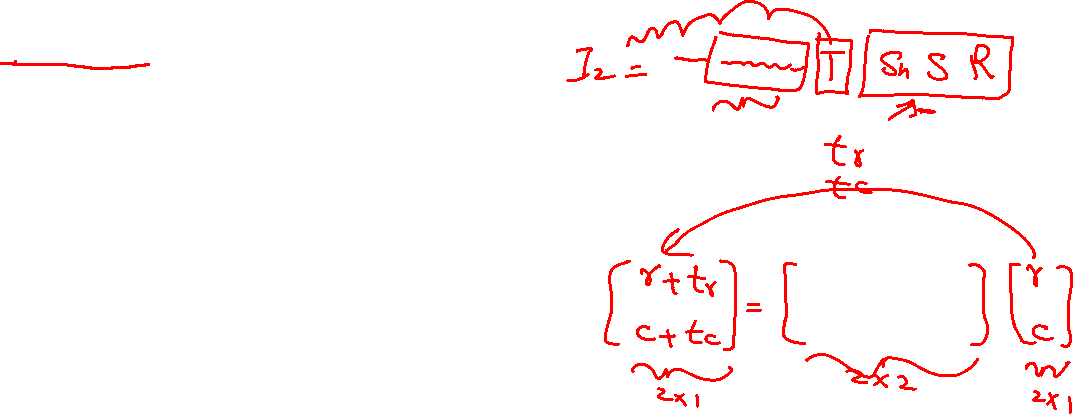 I2 = T Sh S R
tr
tc
[r + tr] = [ ] [r]
[c + tc] [c]
2x1 2x2 2x1